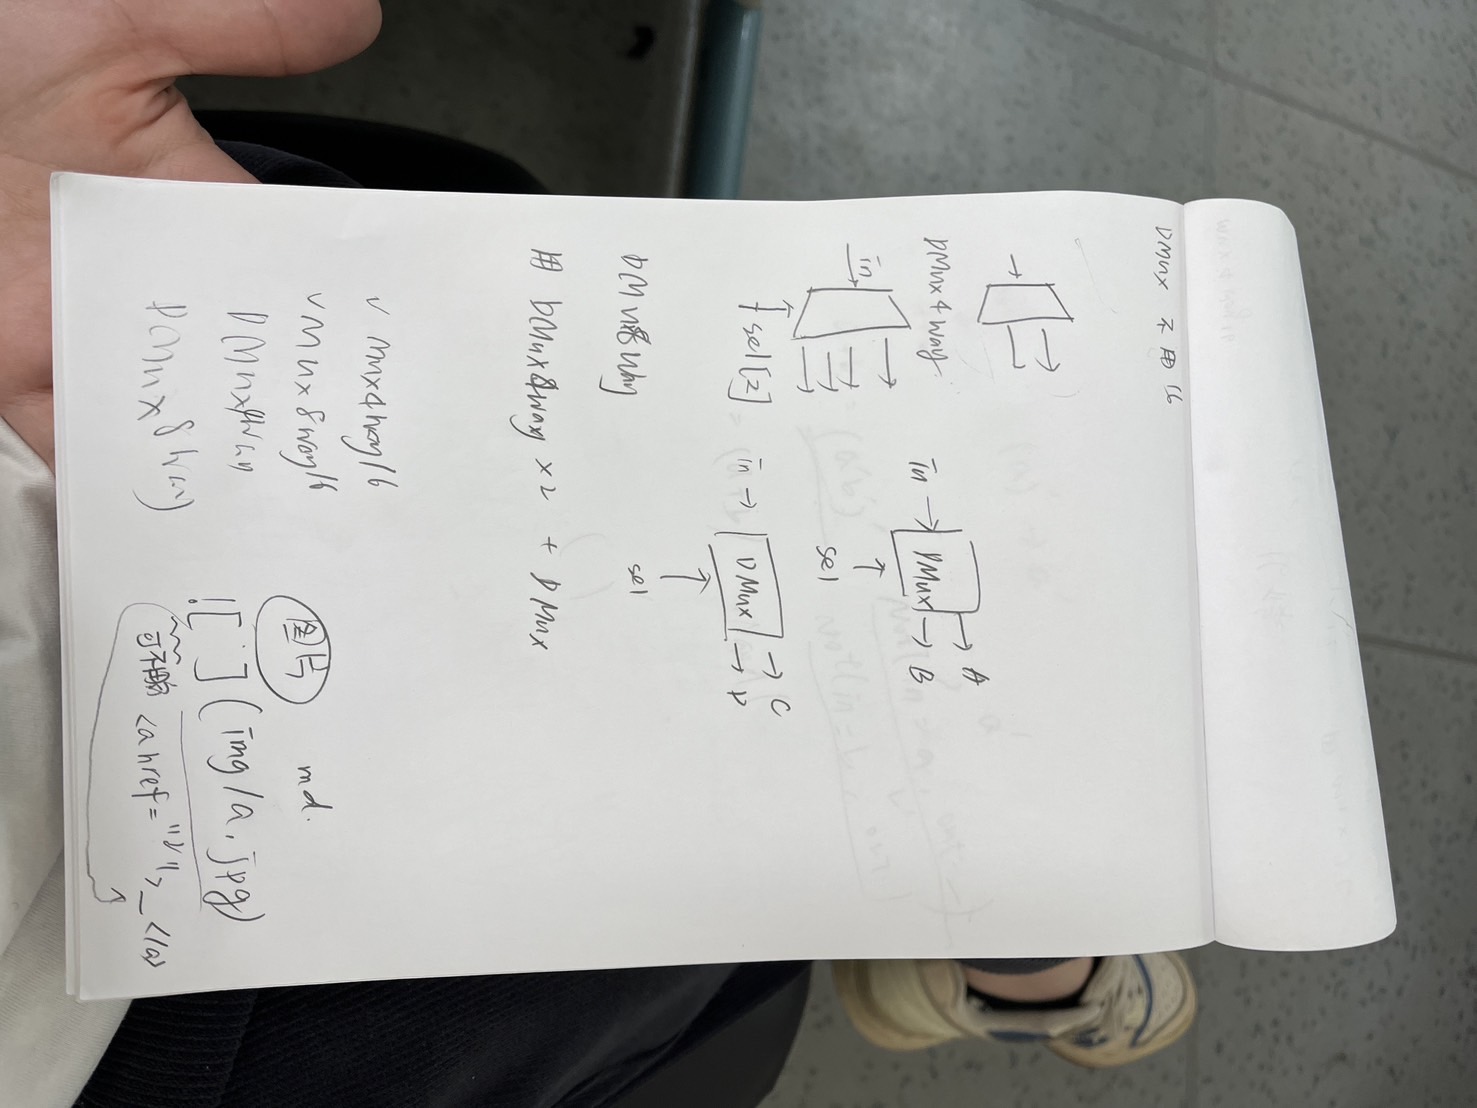 DMux 不用16
DMux4way
in
sel[2]
in → DMux → A
→ B
sel
in → DMux → C
→ D
sel
DMux8way
用 DMux8way x2 + DMux
v Mux4way16
v Mux8way16
DMux8way
图片
md.
![ ](img/a.jpg)
<a href="">_</a>